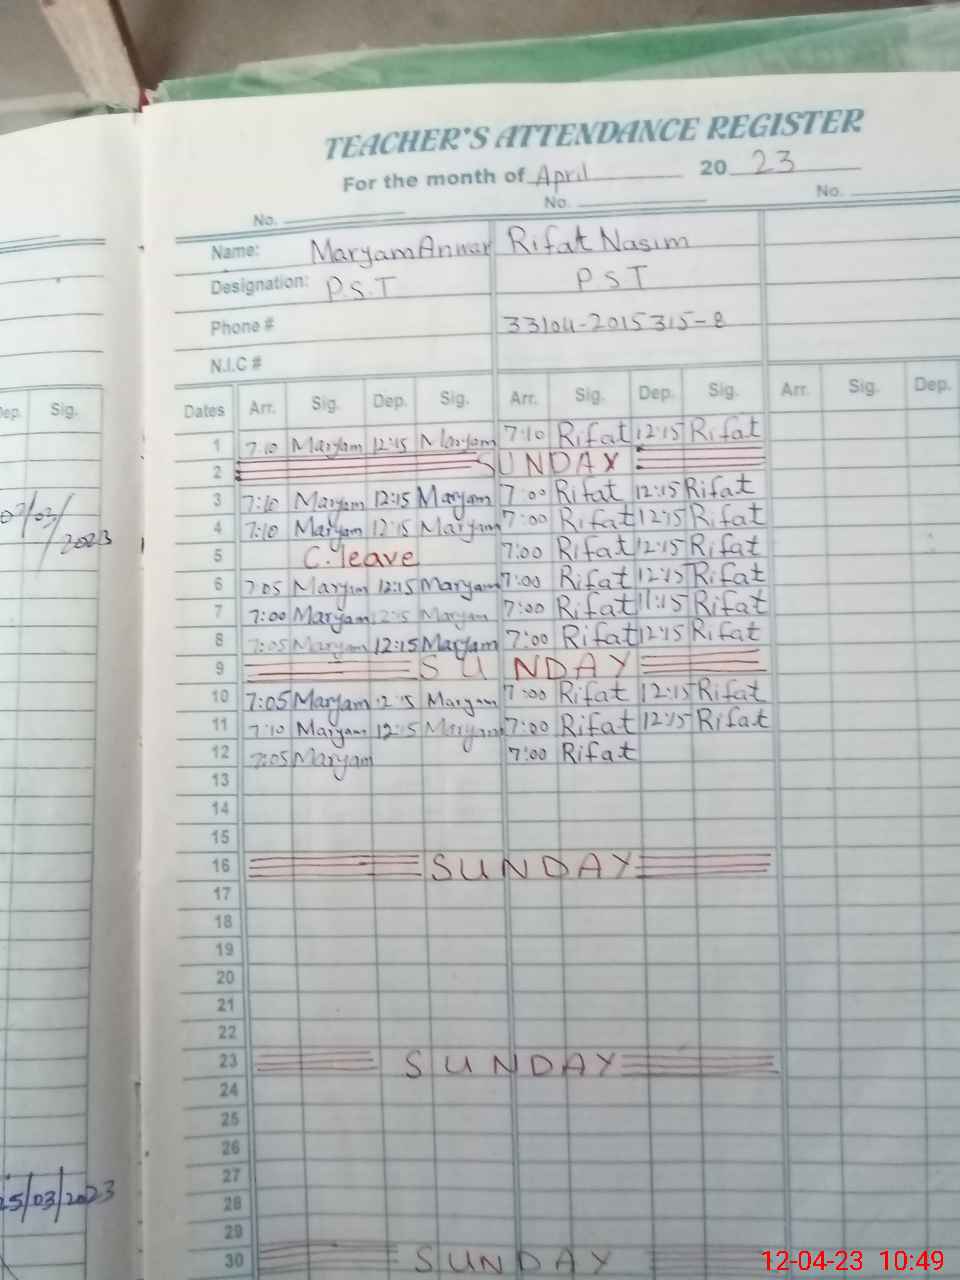 TEACHER'S ATTENDANCE REGISTER
For the month of April 20 23
No. No. No.
Name: Maryam Anwar Rifat Nasim
Designation: P.S.T PST
Phone # 33104-2015315-8
N.I.C #
Dates Arr. Sig. Dep. Sig. Arr. Sig. Dep. Sig. Arr. Sig. Dep.
ep. Sig.
1 7:10 Maryam 12:15 Maryam 7:10 Rifat 12:15 Rifat
2 SUNDAY
3 7:10 Maryam 12:15 Maryam 7:00 Rifat 12:15 Rifat
4 7:10 Maryam 12:15 Maryam 7:00 Rifat 12:15 Rifat
5 C.leave 7:00 Rifat 12:15 Rifat
6 7:05 Maryam 12:15 Maryam 7:00 Rifat 12:15 Rifat
7 7:00 Maryam 12:15 Maryam 7:00 Rifat 11:15 Rifat
8 7:05 Maryam 12:15 Maryam 7:00 Rifat 12:15 Rifat
9 SUNDAY
10 7:05 Maryam 12:15 Maryam 7:00 Rifat 12:15 Rifat
11 7:10 Maryam 12:15 Maryam 7:00 Rifat 12:15 Rifat
12 7:05 Maryam 7:00 Rifat
13
14
15
16 SUNDAY
17
18
19
20
21
22
23 SUNDAY
24
25
26
27
28
29
30 SUNDAY
/03/
2023
25/03/2023
12-04-23 10:49